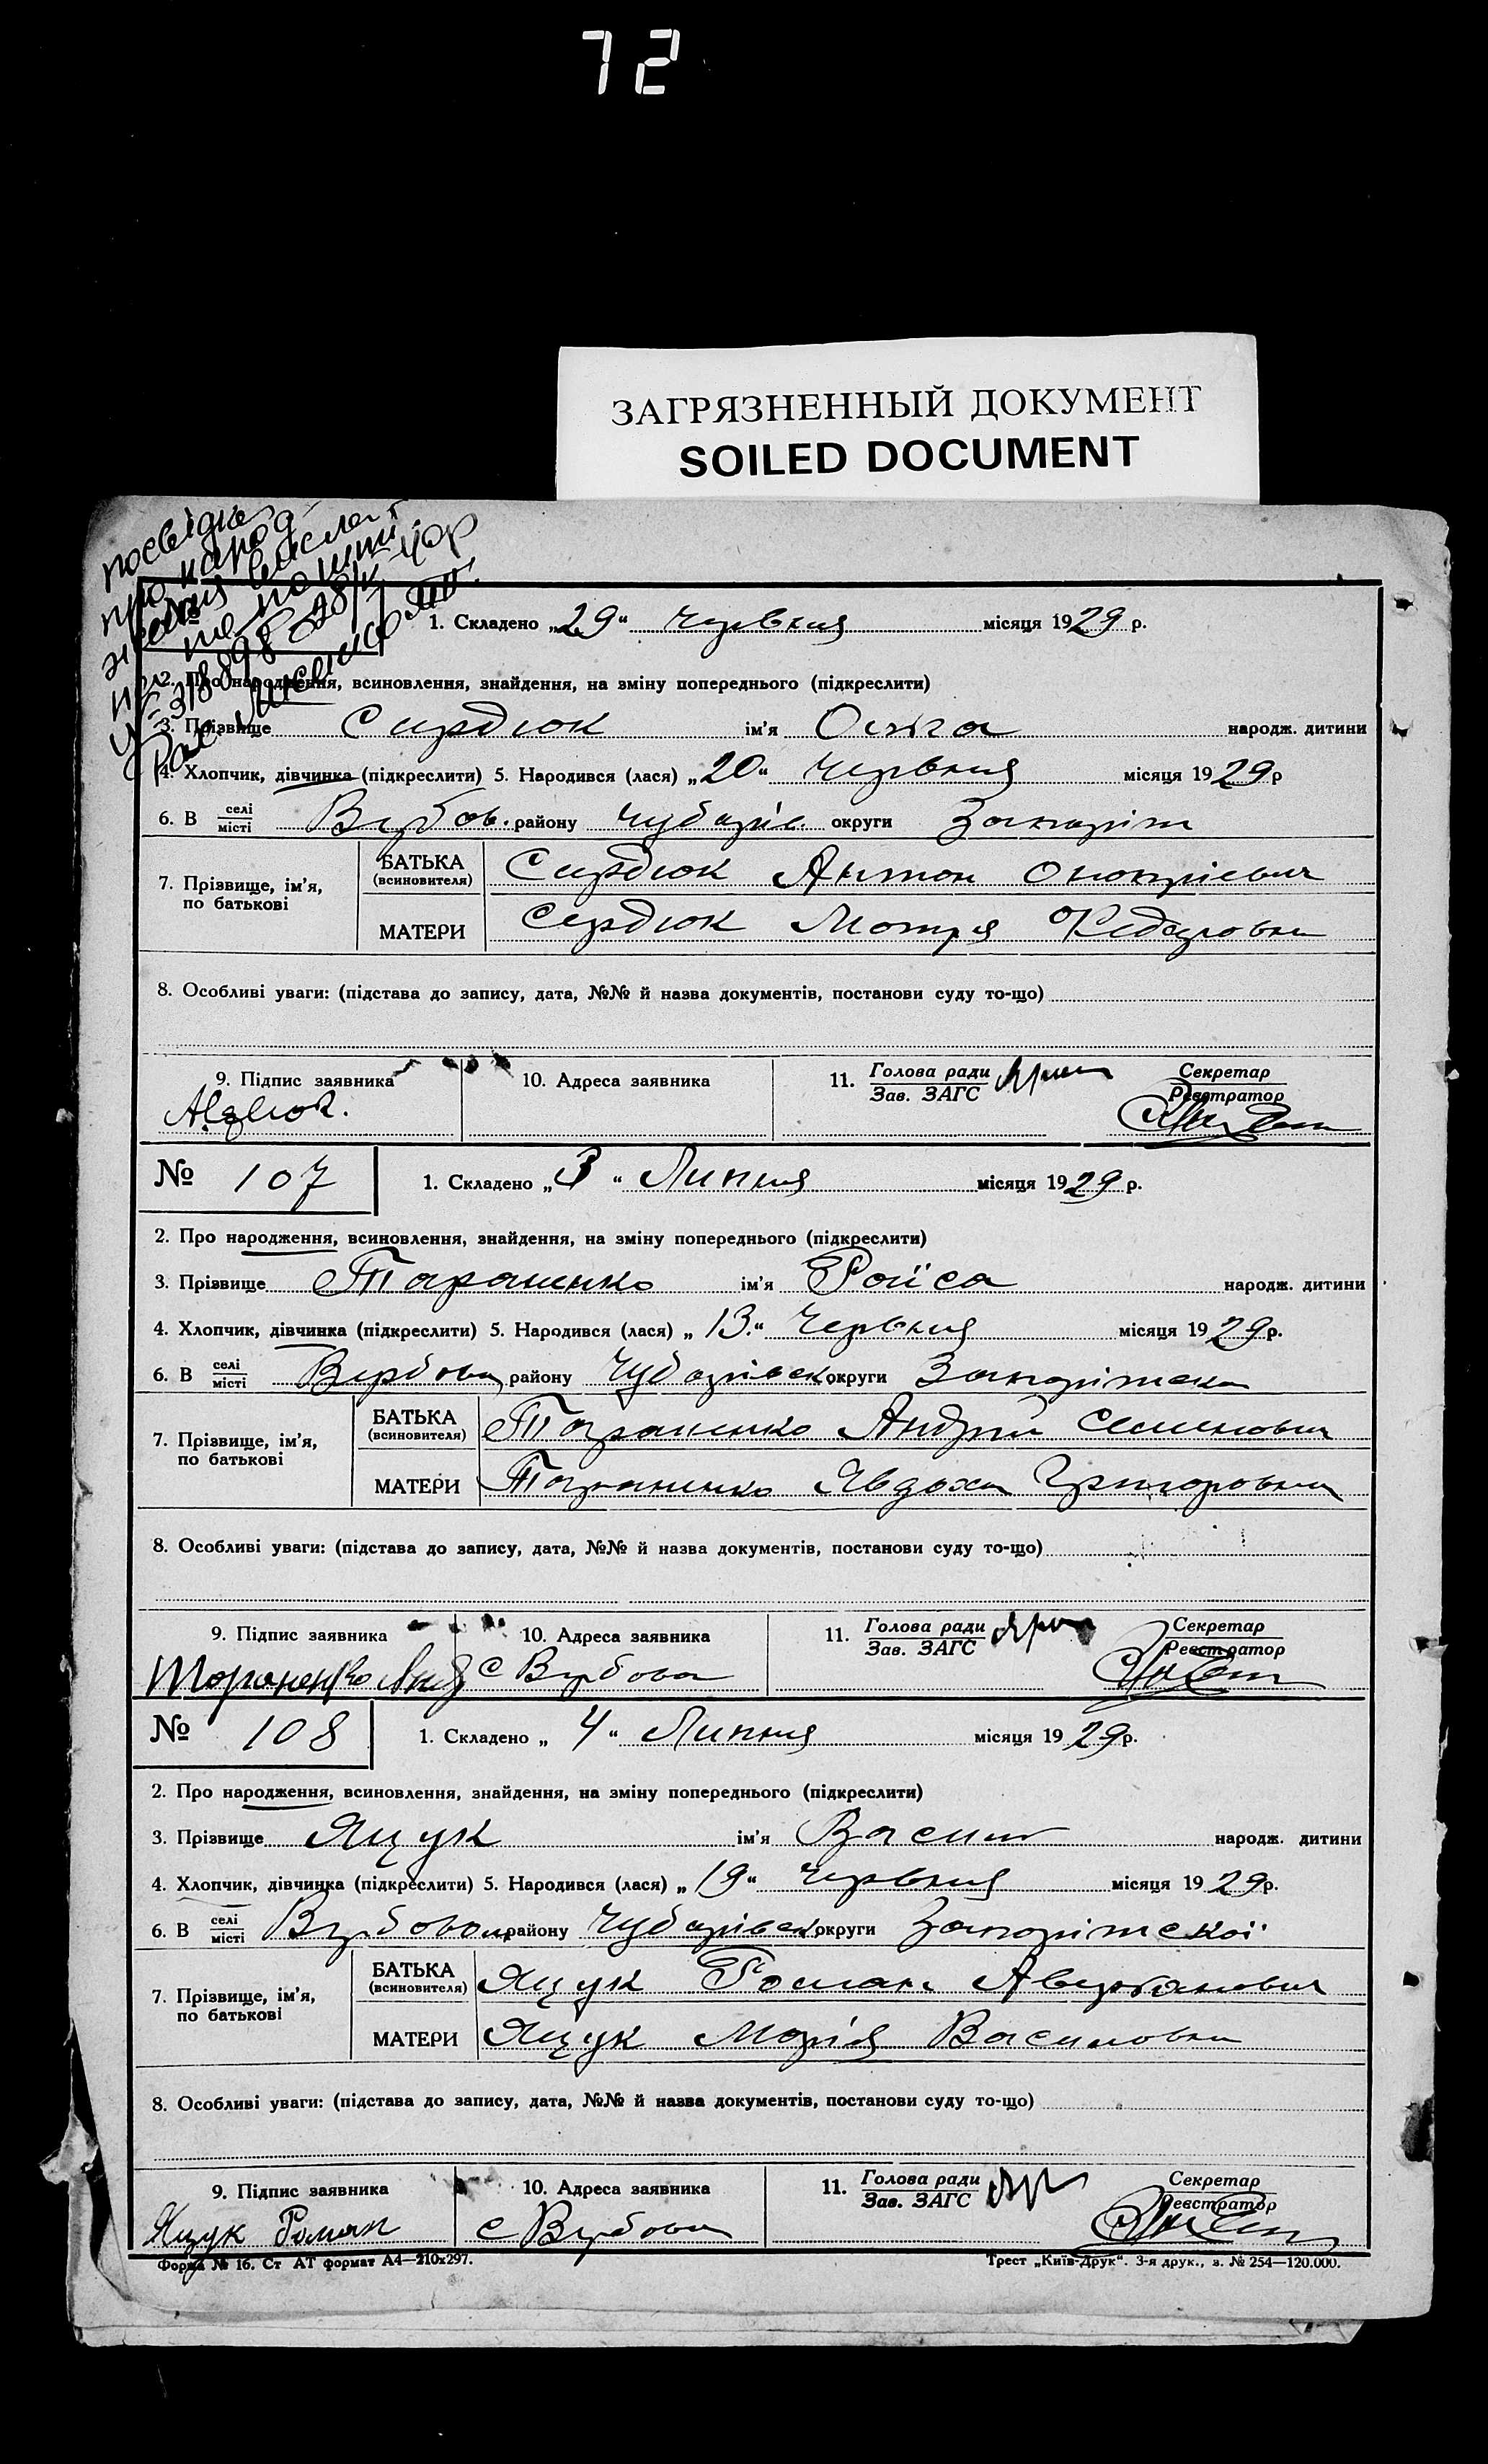 72
ЗАГРЯЗНЕННЫЙ ДОКУМЕНТ
SOILED DOCUMENT
1. Складено „29“ Червня місяця 1929 р.
2. Про народження, всиновлення, знайдення, на зміну попереднього (підкреслити)
3. Прізвище Сирдюк ім'я Ольга народж. дитини
4. Хлопчик, дівчинка (підкреслити) 5. Народився (лася) „20“ Червня місяця 1929 р
6. В селі/місті Вербов. району Чубарів. округи Запоріж
7. Прізвище, ім'я, по батькові
БАТЬКА (всиновителя) Сирдюк Антон
МАТЕРИ Сердюк Мотря Федоровна
8. Особливі уваги: (підстава до запису, дата, №№ й назва документів, постанови суду то-що)
9. Підпис заявника 10. Адреса заявника 11. Голова ради/Зав. ЗАГС Секретар/Реєстратор
№ 107 1. Складено „3“ Липня місяця 1929 р.
2. Про народження, всиновлення, знайдення, на зміну попереднього (підкреслити)
3. Прізвище Тараненко ім'я Раїса народж. дитини
4. Хлопчик, дівчинка (підкреслити) 5. Народився (лася) „13“ Червня місяця 1929 р.
6. В селі/місті Вербова району Чубарівськ округи Запоріжська
7. Прізвище, ім'я, по батькові
БАТЬКА (всиновителя) Тараненко Андрій Семенович
МАТЕРИ Тараненко Явдоха Григоровна
8. Особливі уваги: (підстава до запису, дата, №№ й назва документів, постанови суду то-що)
9. Підпис заявника 10. Адреса заявника 11. Голова ради/Зав. ЗАГС Секретар/Реєстратор
Тороненко Анд с Вербова
№ 108 1. Складено „4“ Липня місяця 1929 р.
2. Про народження, всиновлення, знайдення, на зміну попереднього (підкреслити)
3. Прізвище Ящук ім'я Васил народж. дитини
4. Хлопчик, дівчинка (підкреслити) 5. Народився (лася) „19“ Червня місяця 1929 р.
6. В селі/місті Вербовом району Чубарівськ округи Запоріжської
7. Прізвище, ім'я, по батькові
БАТЬКА (всиновителя) Ящук Роман
МАТЕРИ Ящук Марія Василовна
8. Особливі уваги: (підстава до запису, дата, №№ й назва документів, постанови суду то-що)
9. Підпис заявника 10. Адреса заявника 11. Голова ради/Зав. ЗАГС Секретар/Реєстратор
Ящук Роман с Вербова
Форма № 16. Ст АТ формат А4—210х297. Трест „Київ-Друк“. 3-я друк., з. № 254—120.000.